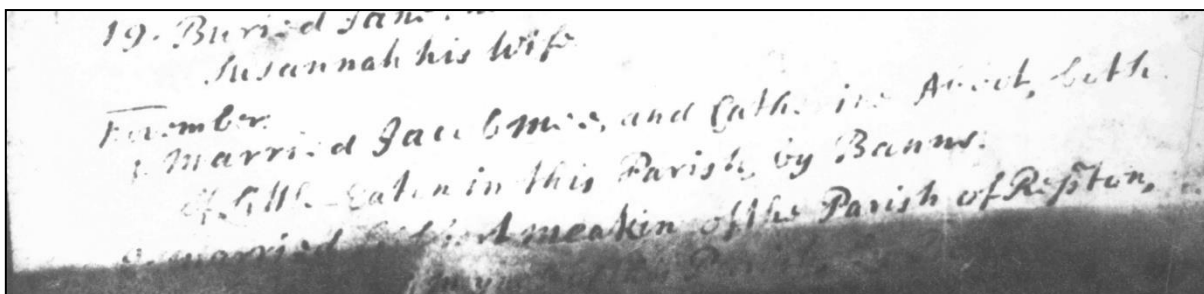 19. Buried Jane
Susannah his Wife
November.
1. Married Jacob Mee, and Catherine both
of Little-Eaton in this Parish, by Banns.
Married Meakin of the Parish of Repton,
Parish